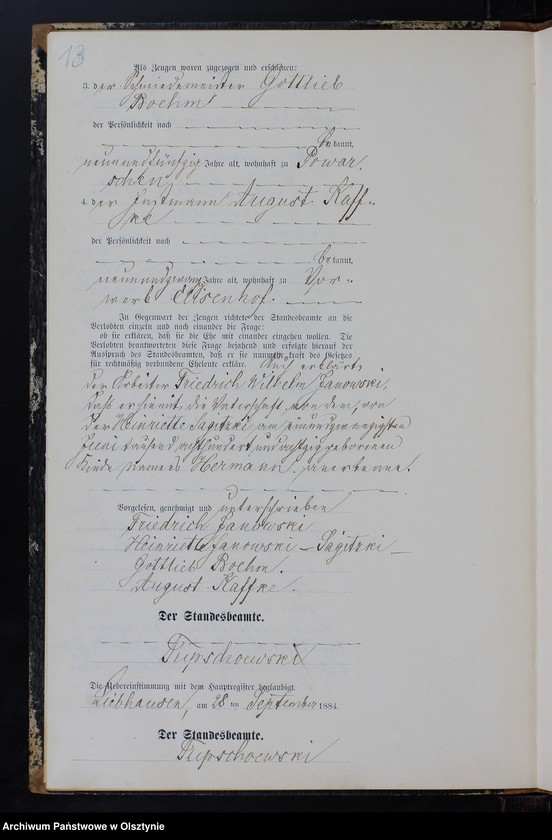 13
Als Zeugen waren zugezogen und erschienen:
3. der Schmiedemeister Gottlieb
Boehm
der Persönlichkeit nach
bekannt,
neunundfünfzig Jahre alt, wohnhaft zu Powar
schen
4. der Instmann August Kaff-
ke
der Persönlichkeit nach
bekannt,
Jahre alt, wohnhaft zu Vor-
werk Elisenhof.
In Gegenwart der Zeugen richtete der Standesbeamte an die
Verlobten einzeln und nach einander die Frage:
ob sie erklären, daß sie die Ehe mit einander eingehen wollen. Die
Verlobten beantworteten diese Frage bejahend und erfolgte hierauf der
Ausspruch des Standesbeamten, daß er sie nunmehr kraft des Gesetzes
für rechtmäßig verbundene Eheleute erkläre. Auch erklärte
der Arbeiter Friedrich Wilhelm Janowski,
daß er hiermit die Vaterschaft von dem, von
der Heinriette Sagitzki am einundzwanzigsten
Juni tausend achthundert und achtzig geborenen
Kinde Namens Hermann anerkenne.
Vorgelesen, genehmigt und unterschrieben
Friedrich Janowski
Heinriette Janowski – Sagitzki
Gottlieb Boehm.
August Kaffke.
Der Standesbeamte.
Die Uebereinstimmung mit dem Hauptregister beglaubigt.
Liebhausen, am 28 ten September 1884.
Der Standesbeamte.
Archiwum Państwowe w Olsztynie